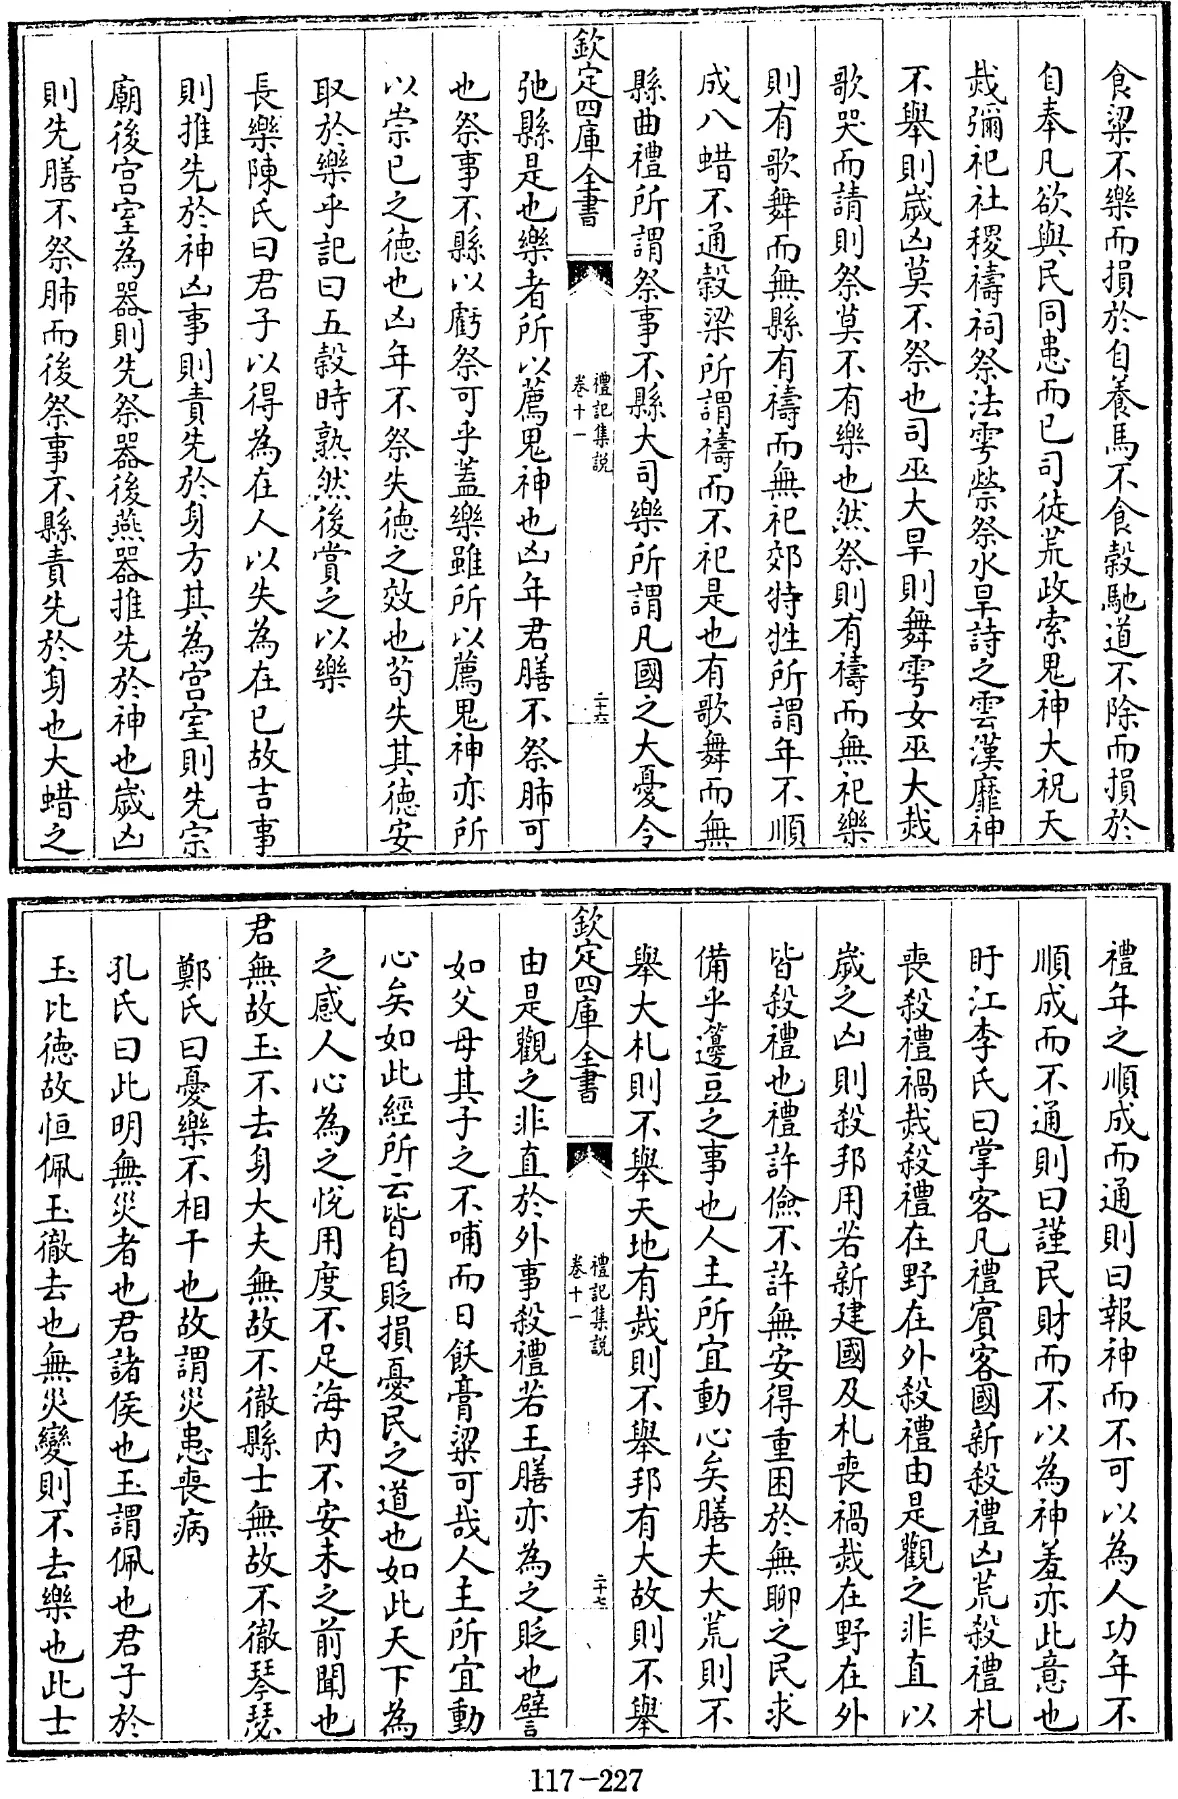 食粱不樂而損於自養馬不食穀馳道不除而損於
自奉凡欲與民同患而已司徒荒政索鬼神大祝天
烖彌祀社稷禱祠祭法雩禜祭水旱詩之雲漢靡神
不舉則歲凶莫不祭也司巫大旱則舞雩女巫大烖
歌哭而請則祭莫不有樂也然祭則有禱而無祀樂
則有歌舞而無縣有禱而無祀郊特牲所謂年不順
成八蜡不通穀梁所謂禱而不祀是也有歌舞而無
縣曲禮所謂祭事不縣大司樂所謂凡國之大憂令
欽定四庫全書
禮記集說
卷十一
二十六
弛縣是也樂者所以薦鬼神也凶年君膳不祭肺可
也祭事不縣以虧祭可乎蓋樂雖所以薦鬼神亦所
以崇已之德也凶年不祭失德之效也茍失其德安
取於樂乎記曰五穀時熟然後賞之以樂
長樂陳氏曰君子以得為在人以失為在已故吉事
則推先於神凶事則責先於身方其為宮室則先宗
廟後宮室為器則先祭器後燕器推先於神也歲凶
則先膳不祭肺而後祭事不縣責先於身也大蜡之
禮年之順成而通則曰報神而不可以為人功年不
順成而不通則曰謹民財而不以為神羞亦此意也
盱江李氏曰掌客凡禮賓客國新殺禮凶荒殺禮札
喪殺禮禍烖殺禮在野在外殺禮由是觀之非直以
歲之凶則殺邦用若新建國及札喪禍烖在野在外
皆殺禮也禮許儉不許無安得重困於無聊之民求
備乎籩豆之事也人主所宜動心矣膳夫大荒則不
舉大札則不舉天地有烖則不舉邦有大故則不舉
欽定四庫全書
禮記集說
卷十一
二十七
由是觀之非直於外事殺禮若王膳亦為之貶也譬
如父母其子之不哺而日飫膏粱可哉人主所宜動
心矣如此經所云皆自貶損憂民之道也如此天下為
之感人心為之悅用度不足海內不安未之前聞也
君無故玉不去身大夫無故不徹縣士無故不徹琴瑟
鄭氏曰憂樂不相干也故謂災患喪病
孔氏曰此明無災者也君諸侯也玉謂佩也君子於
玉比德故恒佩玉徹去也無災變則不去樂也此士
117-227